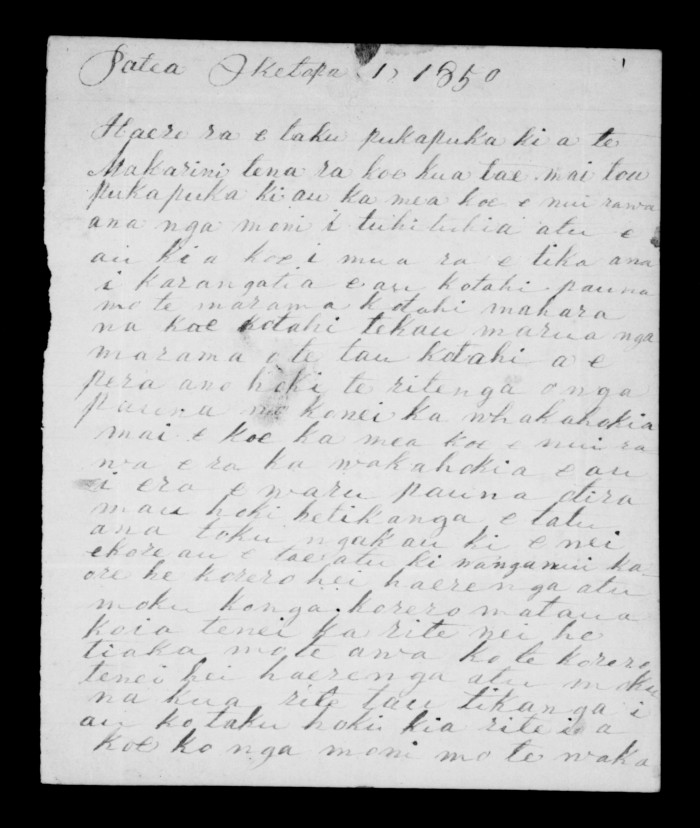 Patea Oketopa 1, 1850
Haere ra e taku pukapuka ki a te
Makarini tena ra koe kua tae mai tou
pukapuka ki au ka mea koe e nui rawa
ana nga moni i tuhituhia atu e
au ki a koe i mua ra e tika ana
i karangatia e au kotahi pauna
mo te marama kotahi mahara
na koe kotahi tekau marua nga
marama o te tau kotahi a e
pera ano hoki te ritenga o nga
pauna no konei ka whakahokia
mai e koe ka mea koe e nui ra
wa e ra ka wakahokia e au
i era e waru pauna otira
mau hoki he tikanga e tatu
ana toku ngakau ki enei
ekore au e tae atu ki wanganui ka
ore he korero hei haerenga atu
moku ko nga korero mataua
koia tenei ka rite nei he
tiaka mo te awa ko te korero
tenei hei haerenga atu moku
na kua rite tau tikanga i
au ko taku hoki kia rite i a
koe ko nga moni mo te waka